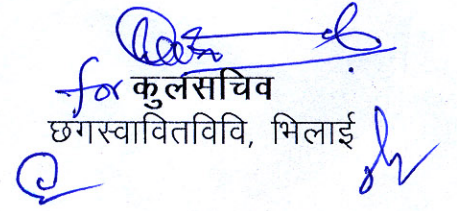 for कुलसचिव
छगस्वावितविवि, भिलाई